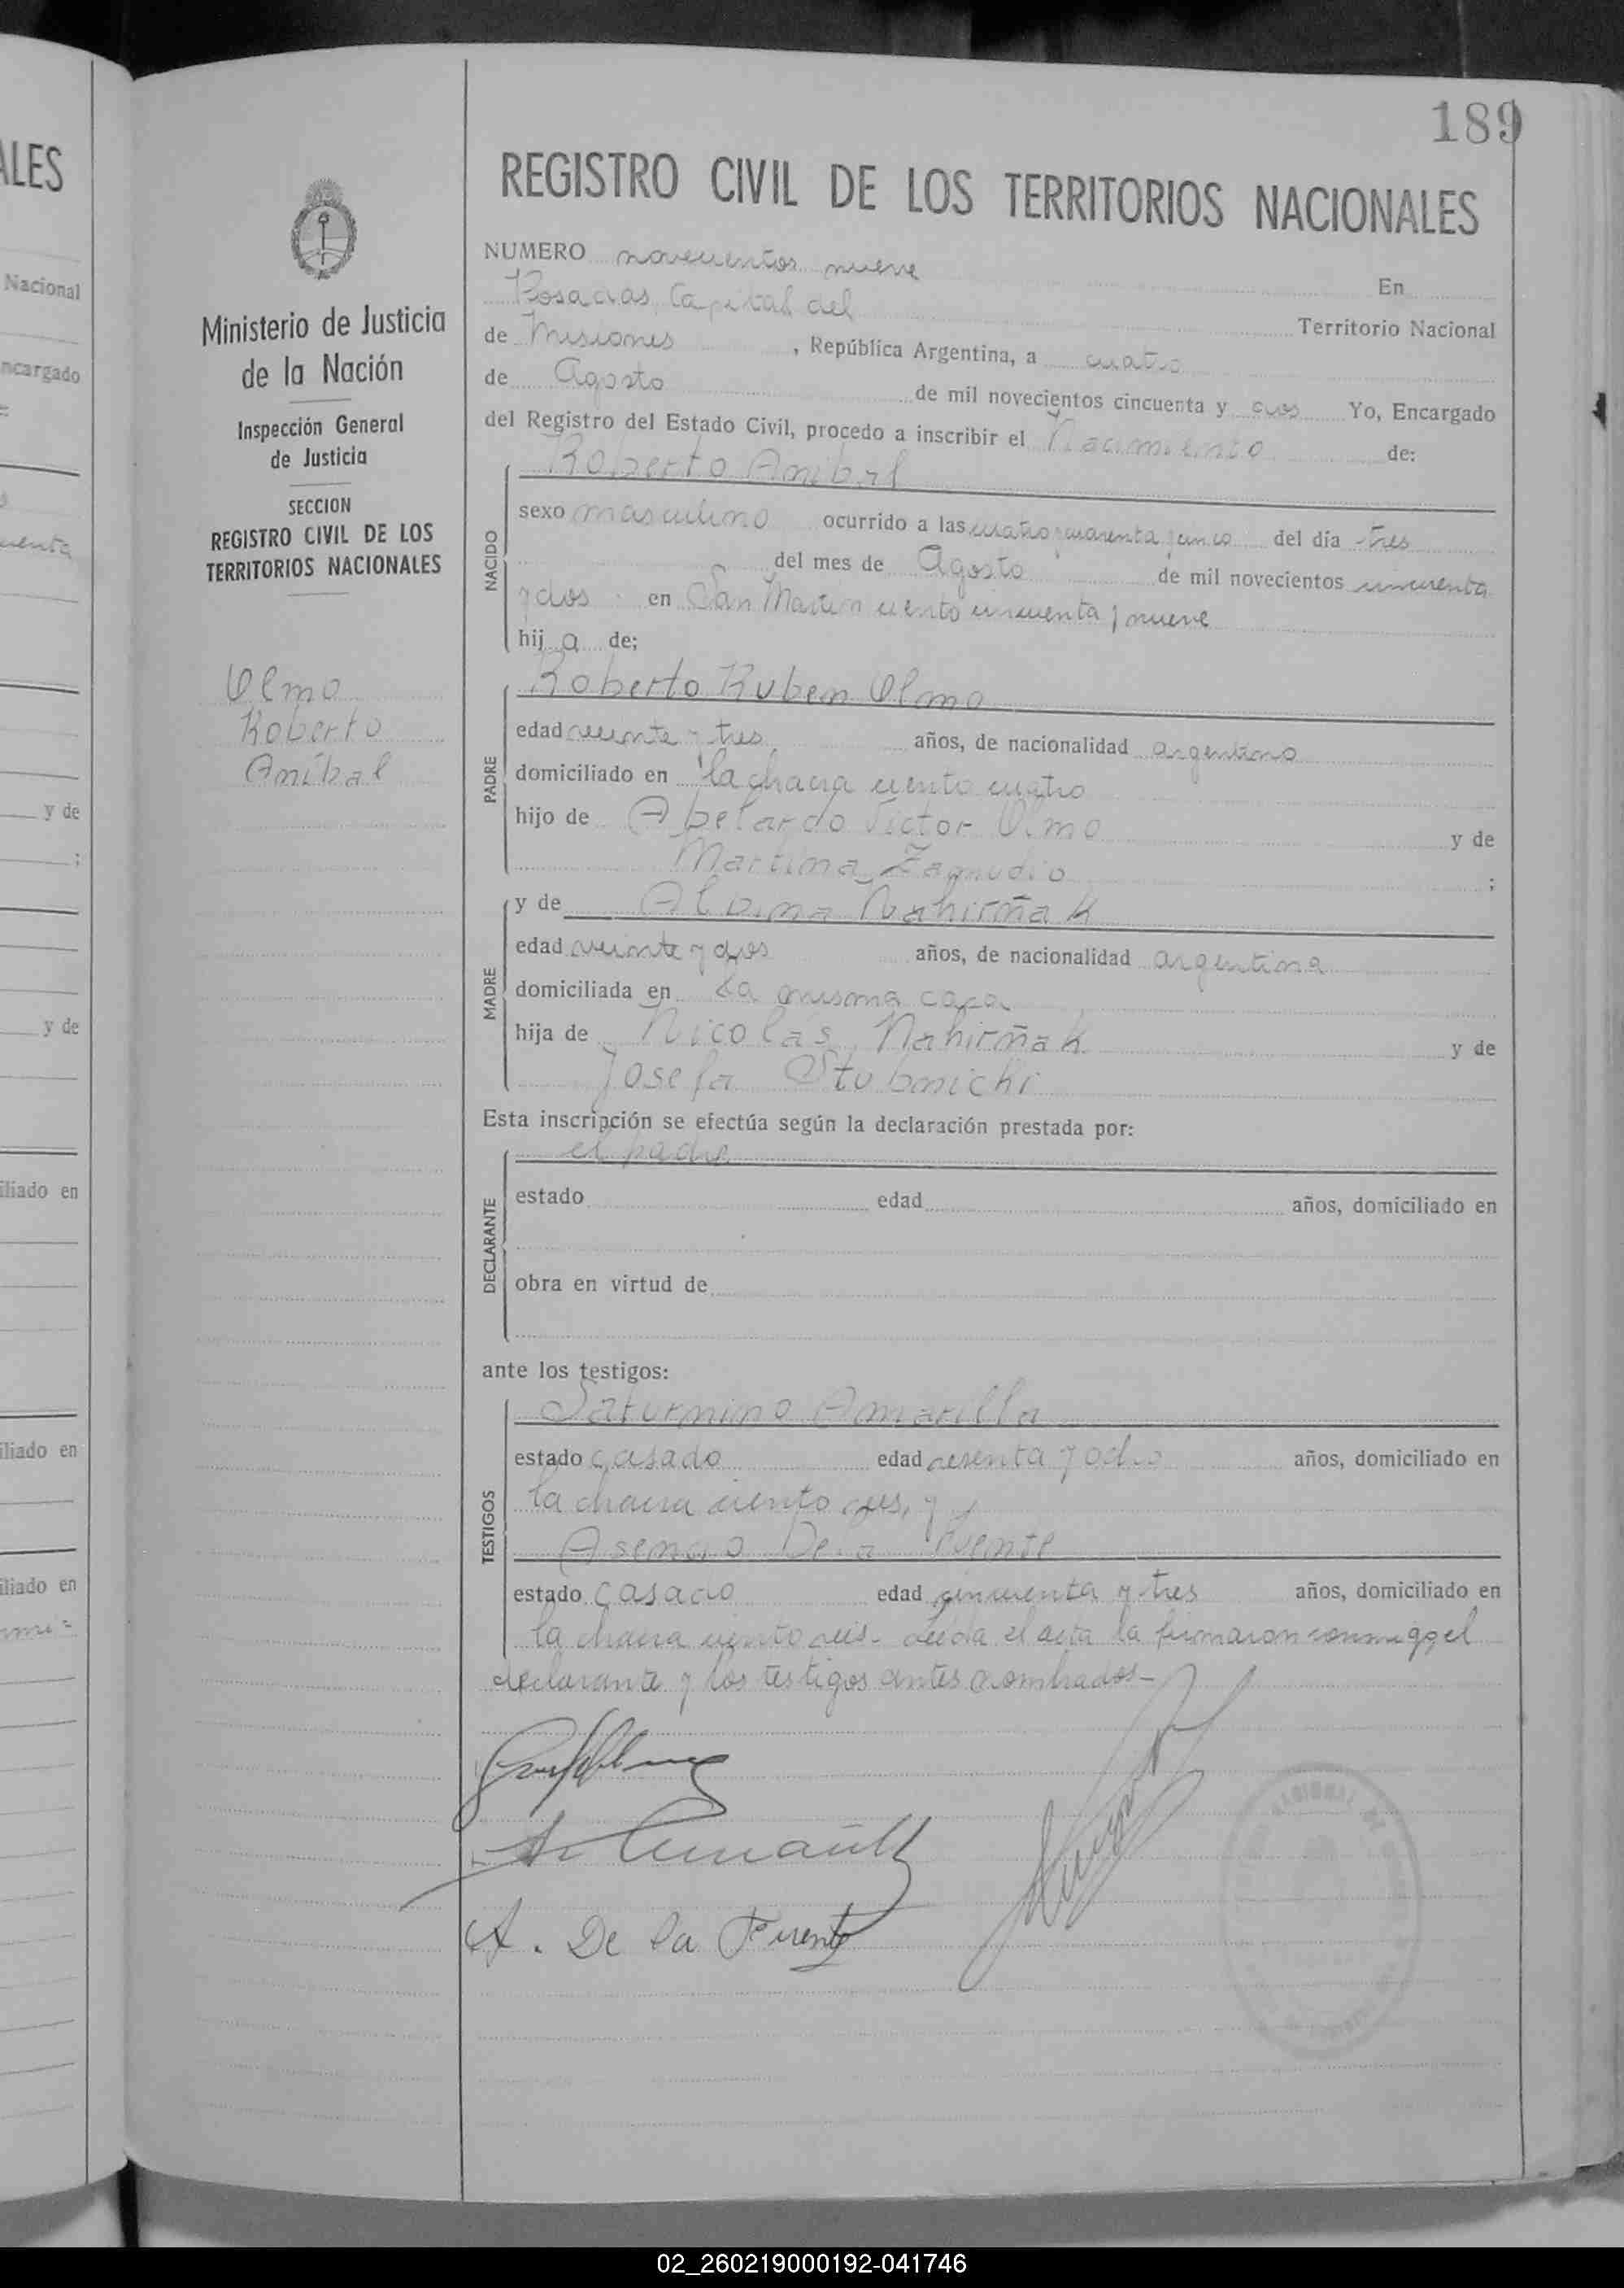 ALES
Nacional
ncargado
uenta
y de
;
y de
iliado en
iliado en
iliado en
189
Ministerio de Justicia
de la Nación
Inspección General
de Justicia
SECCION
REGISTRO CIVIL DE LOS
TERRITORIOS NACIONALES
Olmo
Roberto
Aníbal
REGISTRO CIVIL DE LOS TERRITORIOS NACIONALES
NUMERO novecientos nueve En
Posadas Capital del Territorio Nacional
de Misiones , República Argentina, a cuatro
de Agosto de mil novecientos cincuenta y dos Yo, Encargado
del Registro del Estado Civil, procedo a inscribir el Nacimiento de:
Roberto Anibal
NACIDO
sexo masculino ocurrido a las cuatro y cuarenta y cinco del día tres
del mes de Agosto de mil novecientos cincuenta
y dos en San Martin ciento cincuenta y nueve
hij o de;
Roberto Ruben Olmo
PADRE
edad veinte y tres años, de nacionalidad argentino
domiciliado en la chacra ciento cuatro
hijo de Abelardo Victor Olmo y de
Martina Zamudio ;
y de Alvina Nahirñak
MADRE
edad veinte y dos años, de nacionalidad argentina
domiciliada en La misma casa
hija de Nicolás Nahirñak y de
Josefa Stubnichi
Esta inscripción se efectúa según la declaración prestada por:
el padre
DECLARANTE
estado edad años, domiciliado en
obra en virtud de
ante los testigos:
Saturnino Amarilla
TESTIGOS
estado casado edad sesenta y ocho años, domiciliado en
la chacra ciento seis, y
Asencio De la Fuente
estado casado edad cincuenta y tres años, domiciliado en
la chacra ciento seis- Leída el acta la firmaron conmigo el
declarante y los testigos antes nombrados-
A. De la Fuente
02_260219000192-041746